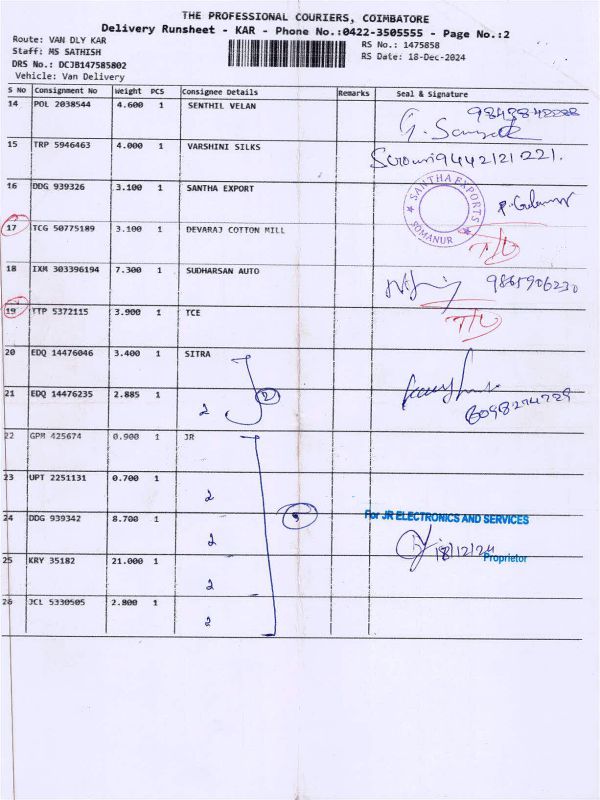 THE PROFESSIONAL COURIERS, COIMBATORE
Delivery Runsheet - KAR - Phone No.:0422-3505555 - Page No.:2
Route: VAN DLY KAR
Staff: MS SATHISH
DRS No.: DCJB147585802
Vehicle: Van Delivery
RS No.: 1475858
RS Date: 18-Dec-2024
S No Consignment No Weight PCS Consignee Details Remarks Seal & Signature
14 POL 2038544 4.600 1 SENTHIL VELAN
15 TRP 5946463 4.000 1 VARSHINI SILKS 9442121221.
16 DDG 939326 3.100 1 SANTHA EXPORT
SANTHA EXPORTS
SOMANUR
17 TCG 50775189 3.100 1 DEVARAJ COTTON MILL
18 IXM 303396194 7.300 1 SUDHARSAN AUTO 9865906230
19 TTP 5372115 3.900 1 TCE
20 EDQ 14476046 3.400 1 SITRA
21 EDQ 14476235 2.885 1 2 2
22 GPM 425674 0.900 1 JR
23 UPT 2251131 0.700 1 2
24 DDG 939342 8.700 1 2
For JR ELECTRONICS AND SERVICES
18/12/24
Proprietor
25 KRY 35182 21.000 1 2
26 JCL 5330505 2.800 1 2